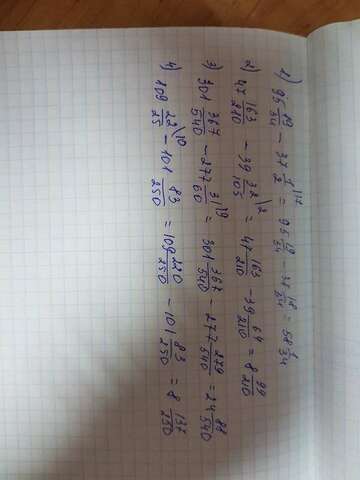 1) 95 19/34 - 37 1/2 \17 = 95 19/34 37 18/34 = 58 1/34
2) 47 163/210 - 39 32/105 \2 = 47 163/210 - 39 64/210 = 8 99/210
3) 301 367/540 - 277 31/60 \9 = 301 367/540 - 277 279/540 = 24 88/540
4) 109 22/25 \10 - 101 83/250 = 109 220/250 - 101 83/250 = 8 137/250